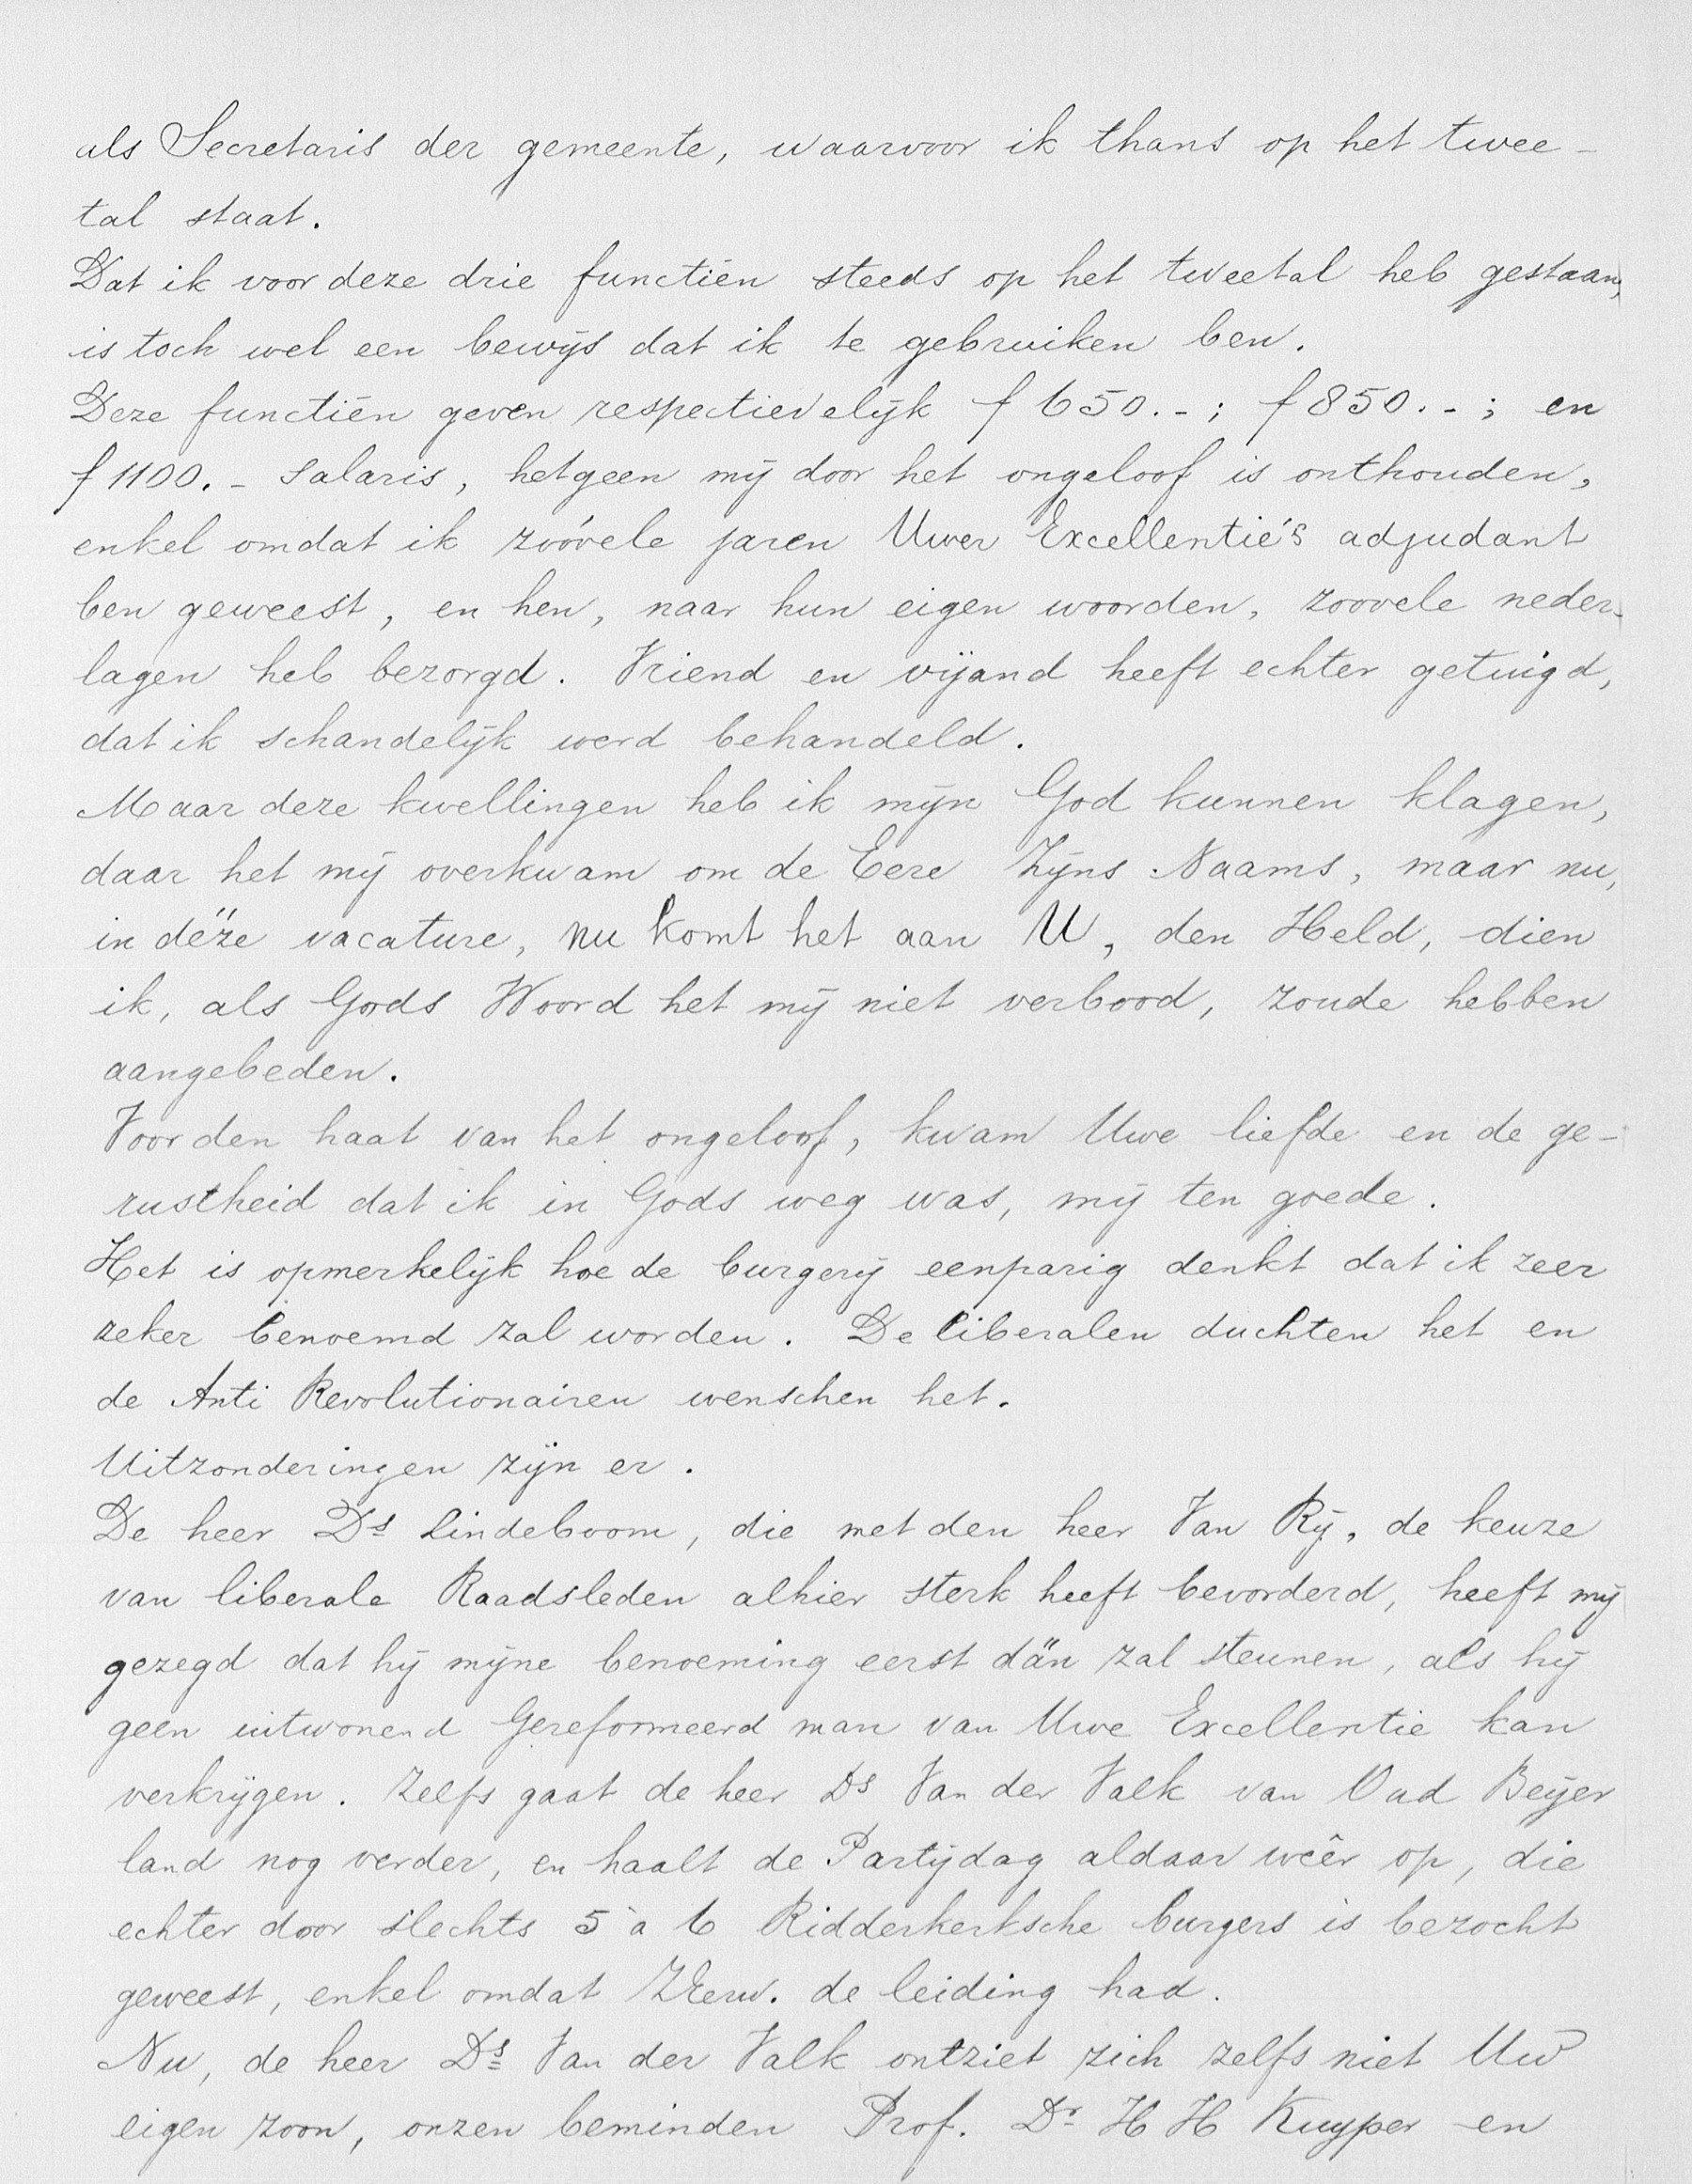 als Secretaris der gemeente, waarvoor ik thans op het twee-
tal staat.
Dat ik voor deze drie functiën steeds op het tweetal heb gestaan,
is toch wel een bewijs dat ik te gebruiken ben.
Deze functiën geven respectievelijk f 650.-; f 850.-; en
f 1100.- salaris, hetgeen mij door het ongeloof is onthouden,
enkel omdat ik zoóvele jaren Uwer Excellentie's adjudant
ben geweest, en hen, naar hun eigen woorden, zoovele neder-
lagen heb bezorgd. Vriend en vijand heeft echter getuigd,
dat ik schandelijk werd behandeld.
Maar deze kwellingen heb ik mijn God kunnen klagen,
daar het mij overkwam om de Eere Zijns Naams, maar nu,
in déze vacature, nu komt het aan U, den Held, dien
ik, als Gods Woord het mij niet verbood, zoude hebben
aangebeden.
Voor den haat van het ongeloof, kwam Uwe liefde en de ge-
rustheid dat ik in Gods weg was, mij ten goede.
Het is opmerkelijk hoe de burgerij eenparig denkt dat ik zeer
zeker benoemd zal worden. De liberalen duchten het en
de Anti Revolutionairen wenschen het.
Uitzonderingen zijn er.
De heer Ds Lindeboom, die met den heer Van Rij, de keuze
van liberale Raadsleden alhier sterk heeft bevorderd, heeft mij
gezegd dat hij mijne benoeming eerst dän zal steunen, als hij
geen uitwonend Gereformeerd man van Uwe Excellentie kan
verkrijgen. Zelfs gaat de heer Ds Van der Valk van Oud Beijer
land nog verder, en haalt de Partijdag aldaar wêer op, die
echter door slechts 5 à 6 Ridderkerksche burgers is bezocht
geweest, enkel omdat ZEerw. de leiding had.
Nu, de heer Ds Van der Valk ontziet zich zelfs niet Uw
eigen zoon, onzen beminden Prof. Dr H H Kuyper en